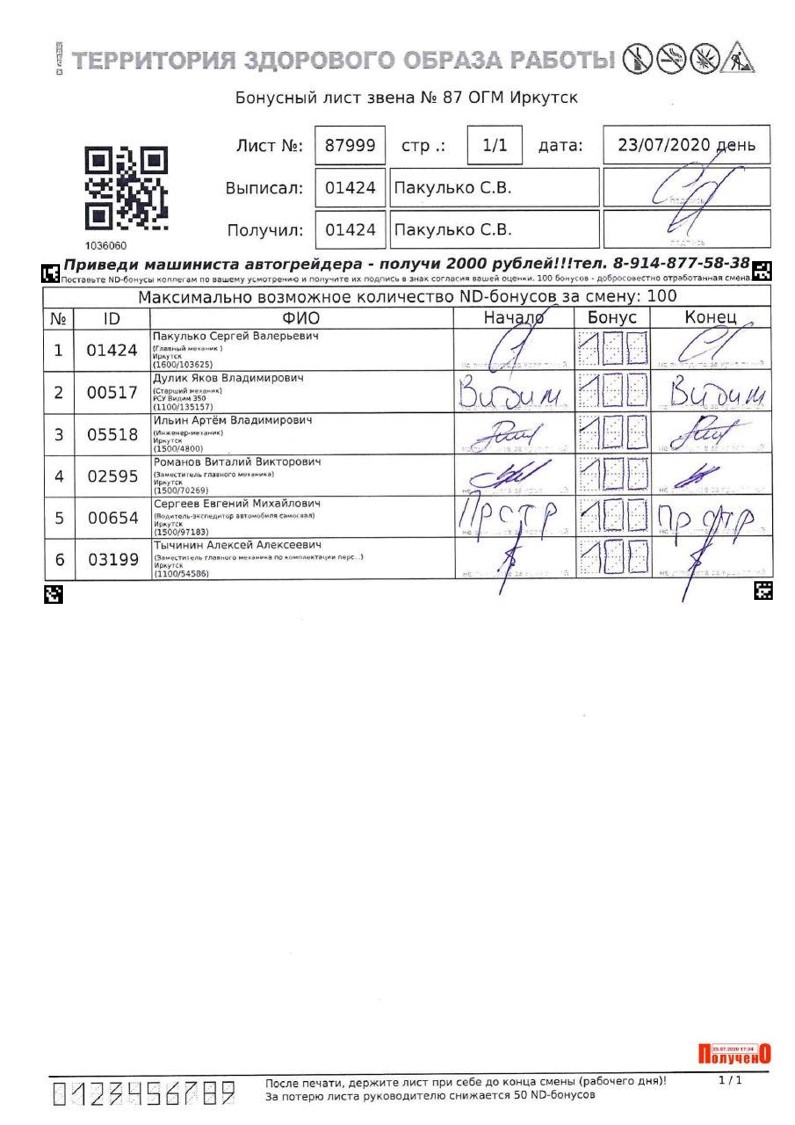 ТЕРРИТОРИЯ ЗДОРОВОГО ОБРАЗА РАБОТЫ
Бонусный лист звена № 87 ОГМ Иркутск
Лист №: 87999 стр .: 1/1 дата: 23/07/2020 день
Выписал: 01424 Пакулько С.В.
Получил: 01424 Пакулько С.В.
1036060
Приведи машиниста автогрейдера - получи 2000 рублей!!!тел. 8-914-877-58-38
Поставьте ND-бонусы коллегам по вашему усмотрению и получите их подпись в знак согласия вашей оценки. 100 бонусов - добросовестно отработанная смена
Максимально возможное количество ND-бонусов за смену: 100
№ ID ФИО Начало Бонус Конец
1 01424 Пакулько Сергей Валерьевич 100
(Главный механик )
Иркутск
(1600/103625)
2 00517 Дулик Яков Владимирович Видим 100 Видим
(Старший механик)
РСУ Видим 350
(1100/135157)
3 05518 Ильин Артём Владимирович 100
(Инженер-механик)
Иркутск
(1500/4800)
4 02595 Романов Виталий Викторович 100
(Заместитель главного механика)
Иркутск
(1500/70269)
5 00654 Сергеев Евгений Михайлович 100
(Водитель-экспедитор автомобиля самосвал)
Иркутск
(1500/97183)
6 03199 Тычинин Алексей Алексеевич 100
(Заместитель главного механика по комплектации перс...)
Иркутск
(1100/54586)
23.07.2020 17:34
ПолученО
0123456789
После печати, держите лист при себе до конца смены (рабочего дня)! 1 / 1
За потерю листа руководителю снижается 50 ND-бонусов